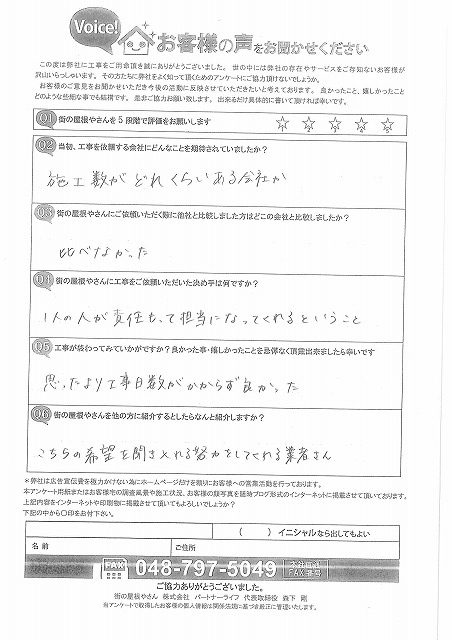 Voice! お客様の声をお聞かせください
この度は弊社に工事をご用命頂き誠にありがとうございました。世の中には弊社の存在やサービスをご存知ないお客様が
沢山いらっしゃいます。その方たちに弊社をよく知って頂くためのアンケートにご協力頂けないでしょうか。
お客様のご意見をお聞かせいただき今後の活動に反映させていただきたいと考えております。良かったこと、嬉しかったこと
どのような些細な事でも結構です。是非ご協力お願い致します。出来るだけ具体的に書いて頂ければ幸いです。
Q1 街の屋根やさんを5段階で評価をお願いします ☆ ☆ ☆ ☆ ☆
Q2 当初、工事を依頼する会社にどんなことを期待されていましたか？
施工数がどれくらいある会社か
Q3 街の屋根やさんにご依頼いただく際に他社と比較しました方はどこの会社と比較しましたか？
比べなかった
Q4 街の屋根やさんに工事をご依頼いただいた決め手は何ですか？
1人の人が責任もって担当になってくれるということ
Q5 工事が終わってみていかがですか？良かった事・嬉しかったことを忌憚なく頂戴出来ましたら幸いです
思ったより工事日数がかからず良かった
Q6 街の屋根やさんを他の方に紹介するとしたらなんと紹介しますか？
こちらの希望を聞き入れる努力をしてくれる業者さん
＊弊社は広告宣伝費を極力かけない為にホームページだけを頼りにお客様への営業活動を行っております。
本アンケート用紙またはお客様宅の調査風景や施工状況、お客様の顔写真を随時ブログ形式のインターネットに掲載させて頂いております。
上記内容をインターネットや印刷物に掲載させて頂いてもよろしいでしょうか？
下記の中から〇印をお付下さい。
（　　）イニシャルなら出してもよい
名 前 ご住所
FAX 048-797-5049 本社直通 FAX番号
ご協力ありがとうございました。
街の屋根やさん 株式会社 パートナーライフ 代表取締役 森下 剛
当アンケートで取得したお客様の個人情報は関係法規に基づき厳正に管理いたします。